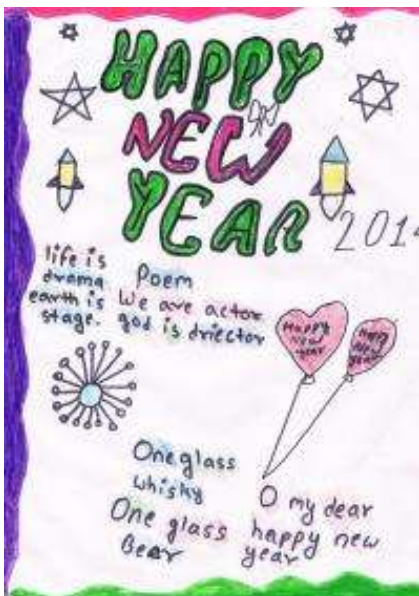 HAPPY
NEW
YEAR
2014
life is
drama
earth is
stage.
Poem
We are actor
god is driector
Happy
New
year
Happy
New
year
One glass
whisky
One glass
Bear
O my dear
happy new
year